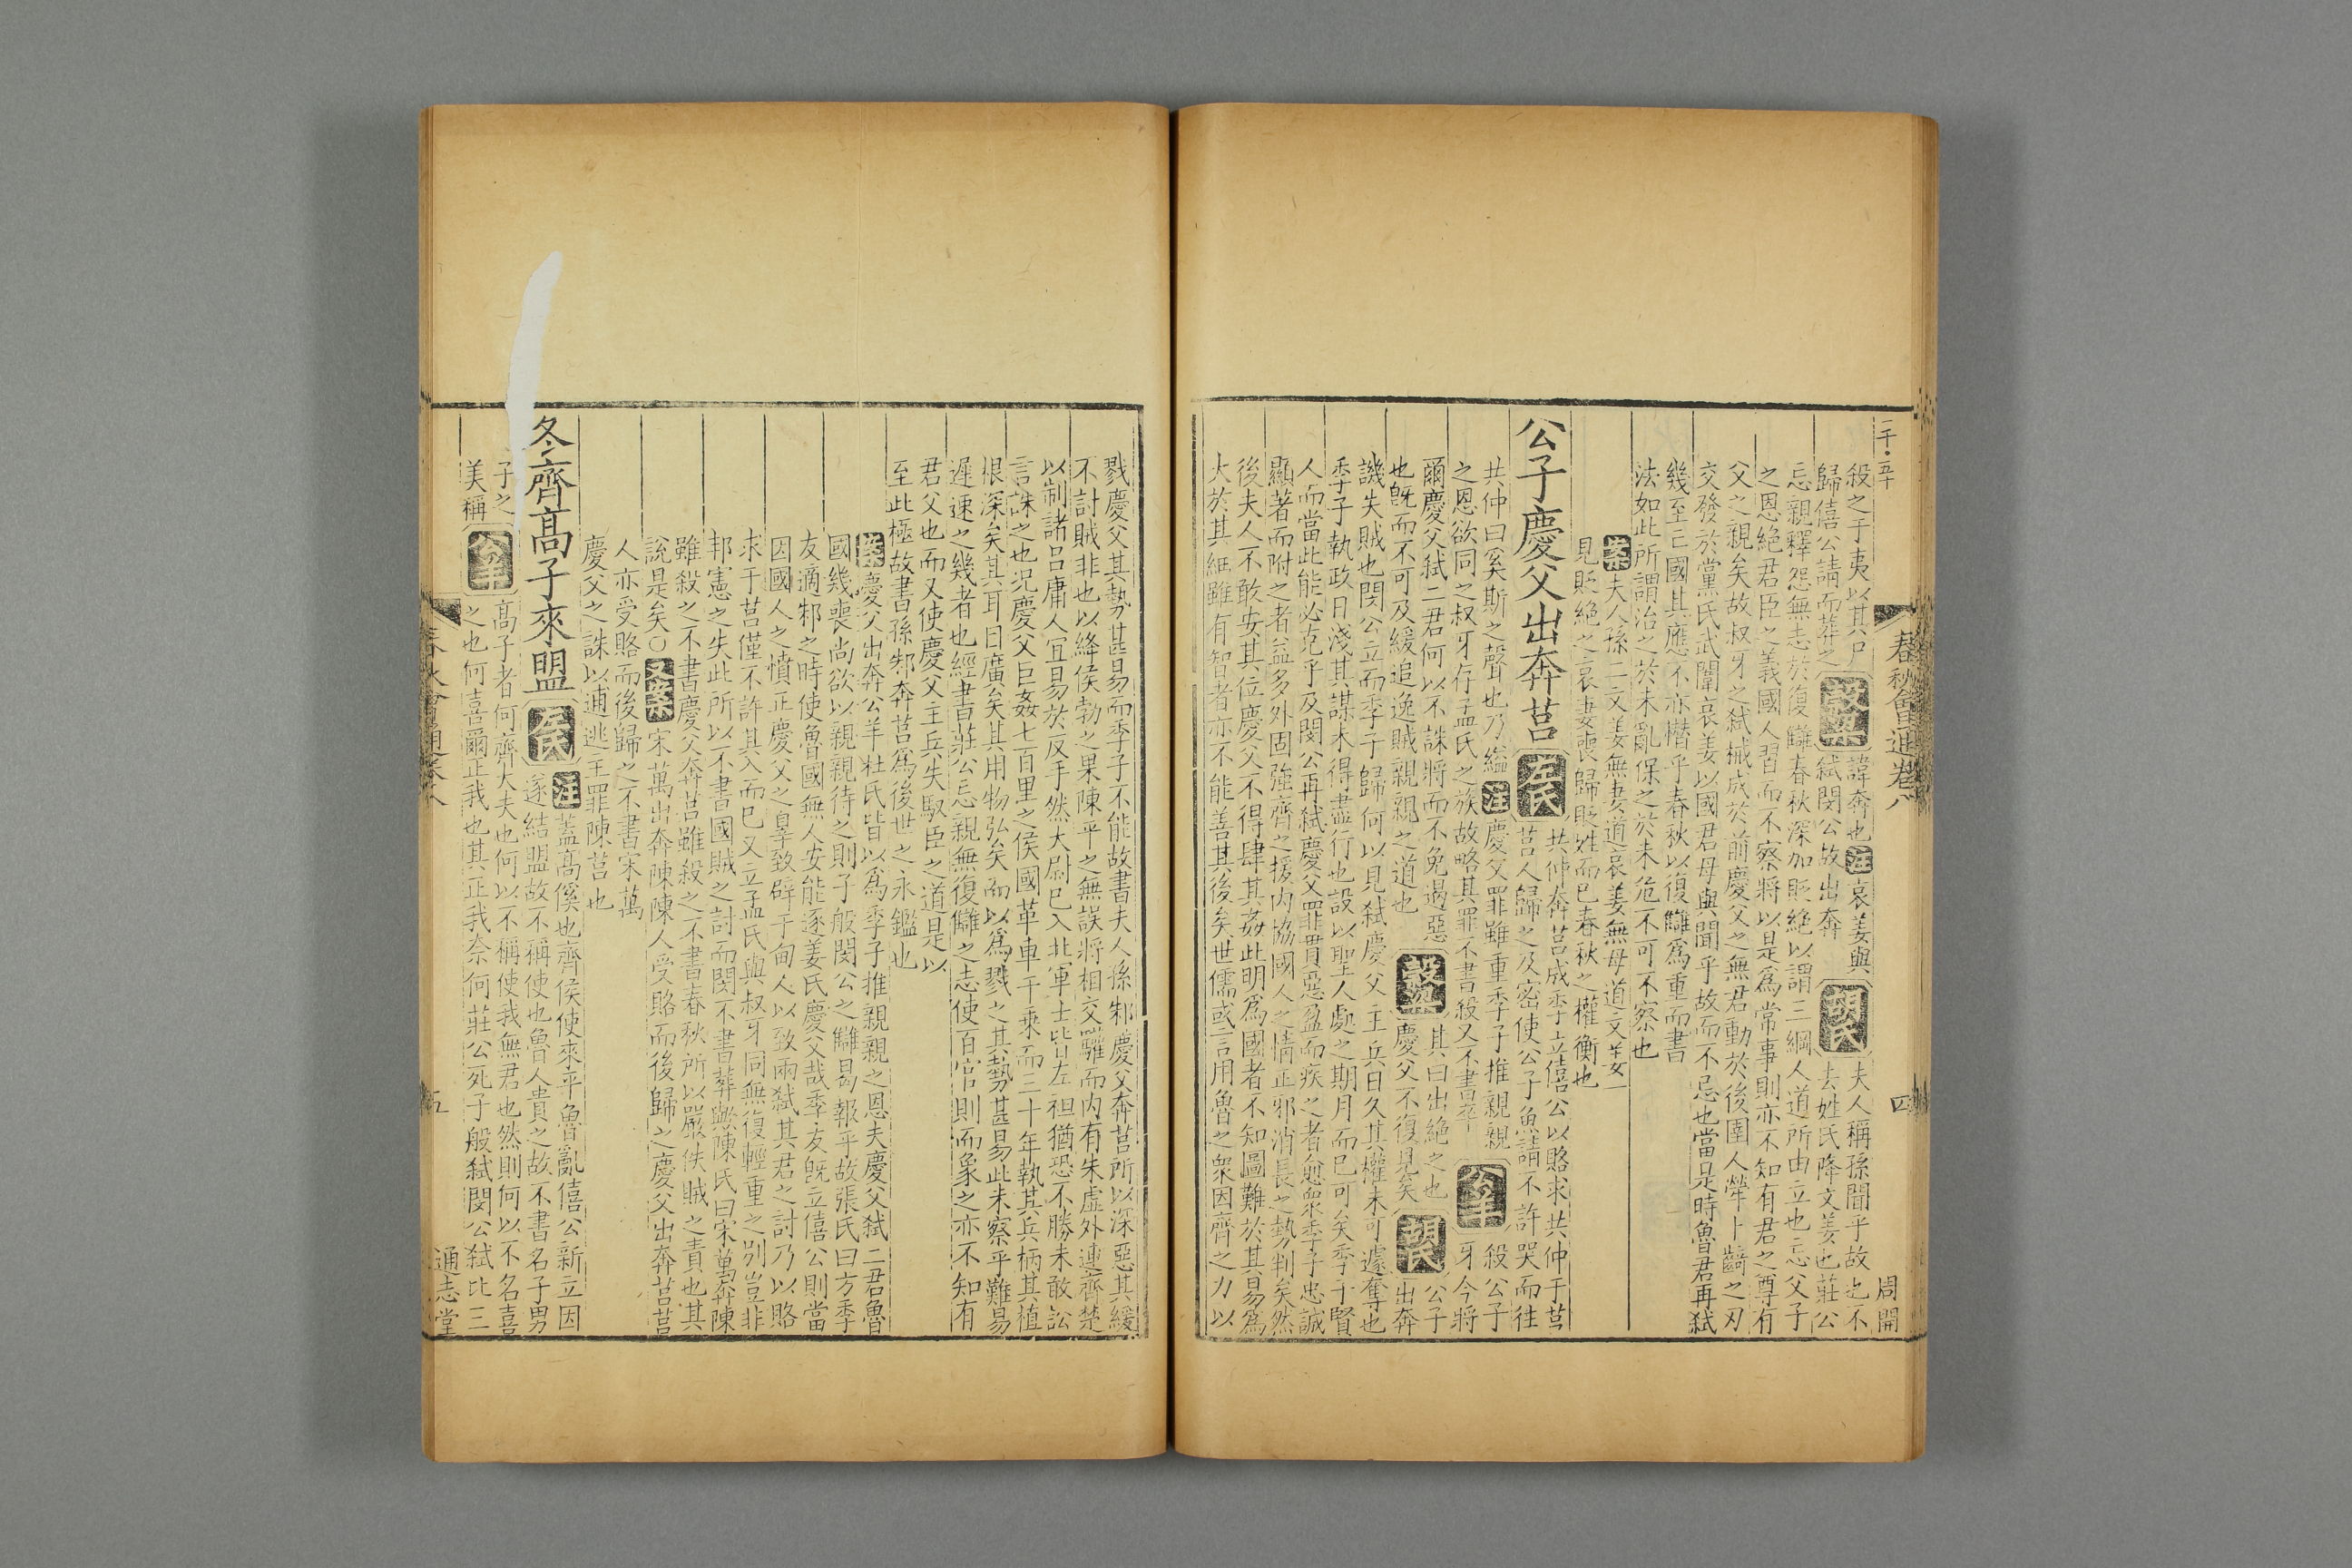 春秋會通卷八
四
周開
殺之于夷以其尸
歸僖公請而葬之
穀梁
諱奔也
注
哀姜與
弒閔公故出奔
胡氏
夫人稱孫聞乎故也不
去姓氏降文姜也莊公
忘親釋怨無志於復讎春秋深加貶絕以謂三綱人道所由立也忘父子
之恩絕君臣之義國人習而不察將以是爲常事則亦不知有君之尊有
父之親矣故叔牙之弒械成於前慶父之無君動於後圉人犖卜齮之刃
交發於黨氏武闈哀姜以國君母與聞乎故而不忌也當是時魯君再弒
幾至亡國其應不亦憯乎春秋以復讎爲重而書
法如此所謂治之於未亂保之於未危不可不察也
案
夫人孫二文姜無妻道哀姜無母道文姜一
見貶絕之哀妻喪歸貶姓而已春秋之權衡也
公子慶父出奔莒
左氏
共仲奔莒成季立僖公以賂求共仲于莒
莒人歸之及密使公子魚請不許哭而往
共仲曰奚斯之聲也乃縊
注
慶父罪雖重季子推親親
之恩欲同之叔牙存孟氏之族故略其罪不書殺又不書卒
公羊
殺公子
牙今將
爾慶父弒二君何以不誅將而不免遏惡
也既而不可及緩追逸賊親親之道也
穀梁
其曰出絕之也
慶父不復見矣
胡氏
公子
出奔
譏失賊也閔公立而季子歸何以見弒慶父主兵日久其權未可遽奪也
季子執政日淺其謀未得盡行也設以聖人處之期月而已可矣季子賢
人而當此能必克乎及閔公再弒慶父罪貫惡盈而疾之者愈衆季子忠誠
顯著而附之者益多外固強齊之援内協國人之情正邪消長之勢判矣然
後夫人不敢安其位慶父不得肆其姦此明爲國者不知圖難於其易爲
大於其細雖有智者亦不能善其後矣世儒或言用魯之衆因齊之力以
戮慶父其勢甚易而季子不能故書夫人孫邾慶父奔莒所以深惡其緩
不討賊非也以絳侯勃之果陳平之無誤將相交驩而内有朱虛外連齊楚
以制諸呂庸人宜易於反手然大尉巳入北軍士皆左袒猶恐不勝未敢訟
言誅之也況慶父巨姦七百里之侯國革車千乘而三十年執其兵柄其植
根深矣其耳目廣矣其用物弘矣而以爲戮之其勢甚易此未察乎難易
遲速之幾者也經書莊公忘親無復讎之志使百官則而象之亦不知有
君父也而又使慶父主兵失馭臣之道是以
至此極故書孫邾奔莒爲後世之永鑑也
案
慶父出奔公羊杜氏皆以爲季子推親親之恩夫慶父弒二君魯
國幾喪尚欲以親親待之則子般閔公之讎曷報乎故張氏曰方季
友適邾之時使魯國無人安能逐姜氏慶父哉季友既立僖公則當
因國人之憤正慶父之辠致辟于甸人以致兩弒其君之討乃以賂
求于莒僅不許其入而已又立孟氏與叔牙同無復輕重之別豈非
邦憲之失此所以不書國賊之討而閔不書葬歟陳氏曰宋萬奔陳
雖殺之不書慶父奔莒雖殺之不書春秋所以嚴佚賊之責也其
說是矣○
又案
宋萬出奔陳陳人受賂而後歸之慶父出奔莒莒
人亦受賂而後歸之不書宋萬
慶父之誅以逋逃主罪陳莒也
冬齊高子來盟
左氏
注
蓋高傒也齊侯使來平魯亂僖公新立因
遂結盟故不稱使也魯人貴之故不書名子男
子之
美稱
公羊
高子者何齊大夫也何以不稱使我無君也然則何以不名喜
之也何喜爾正我也其正我奈何莊公死子般弒閔公弒比三
五
通志堂